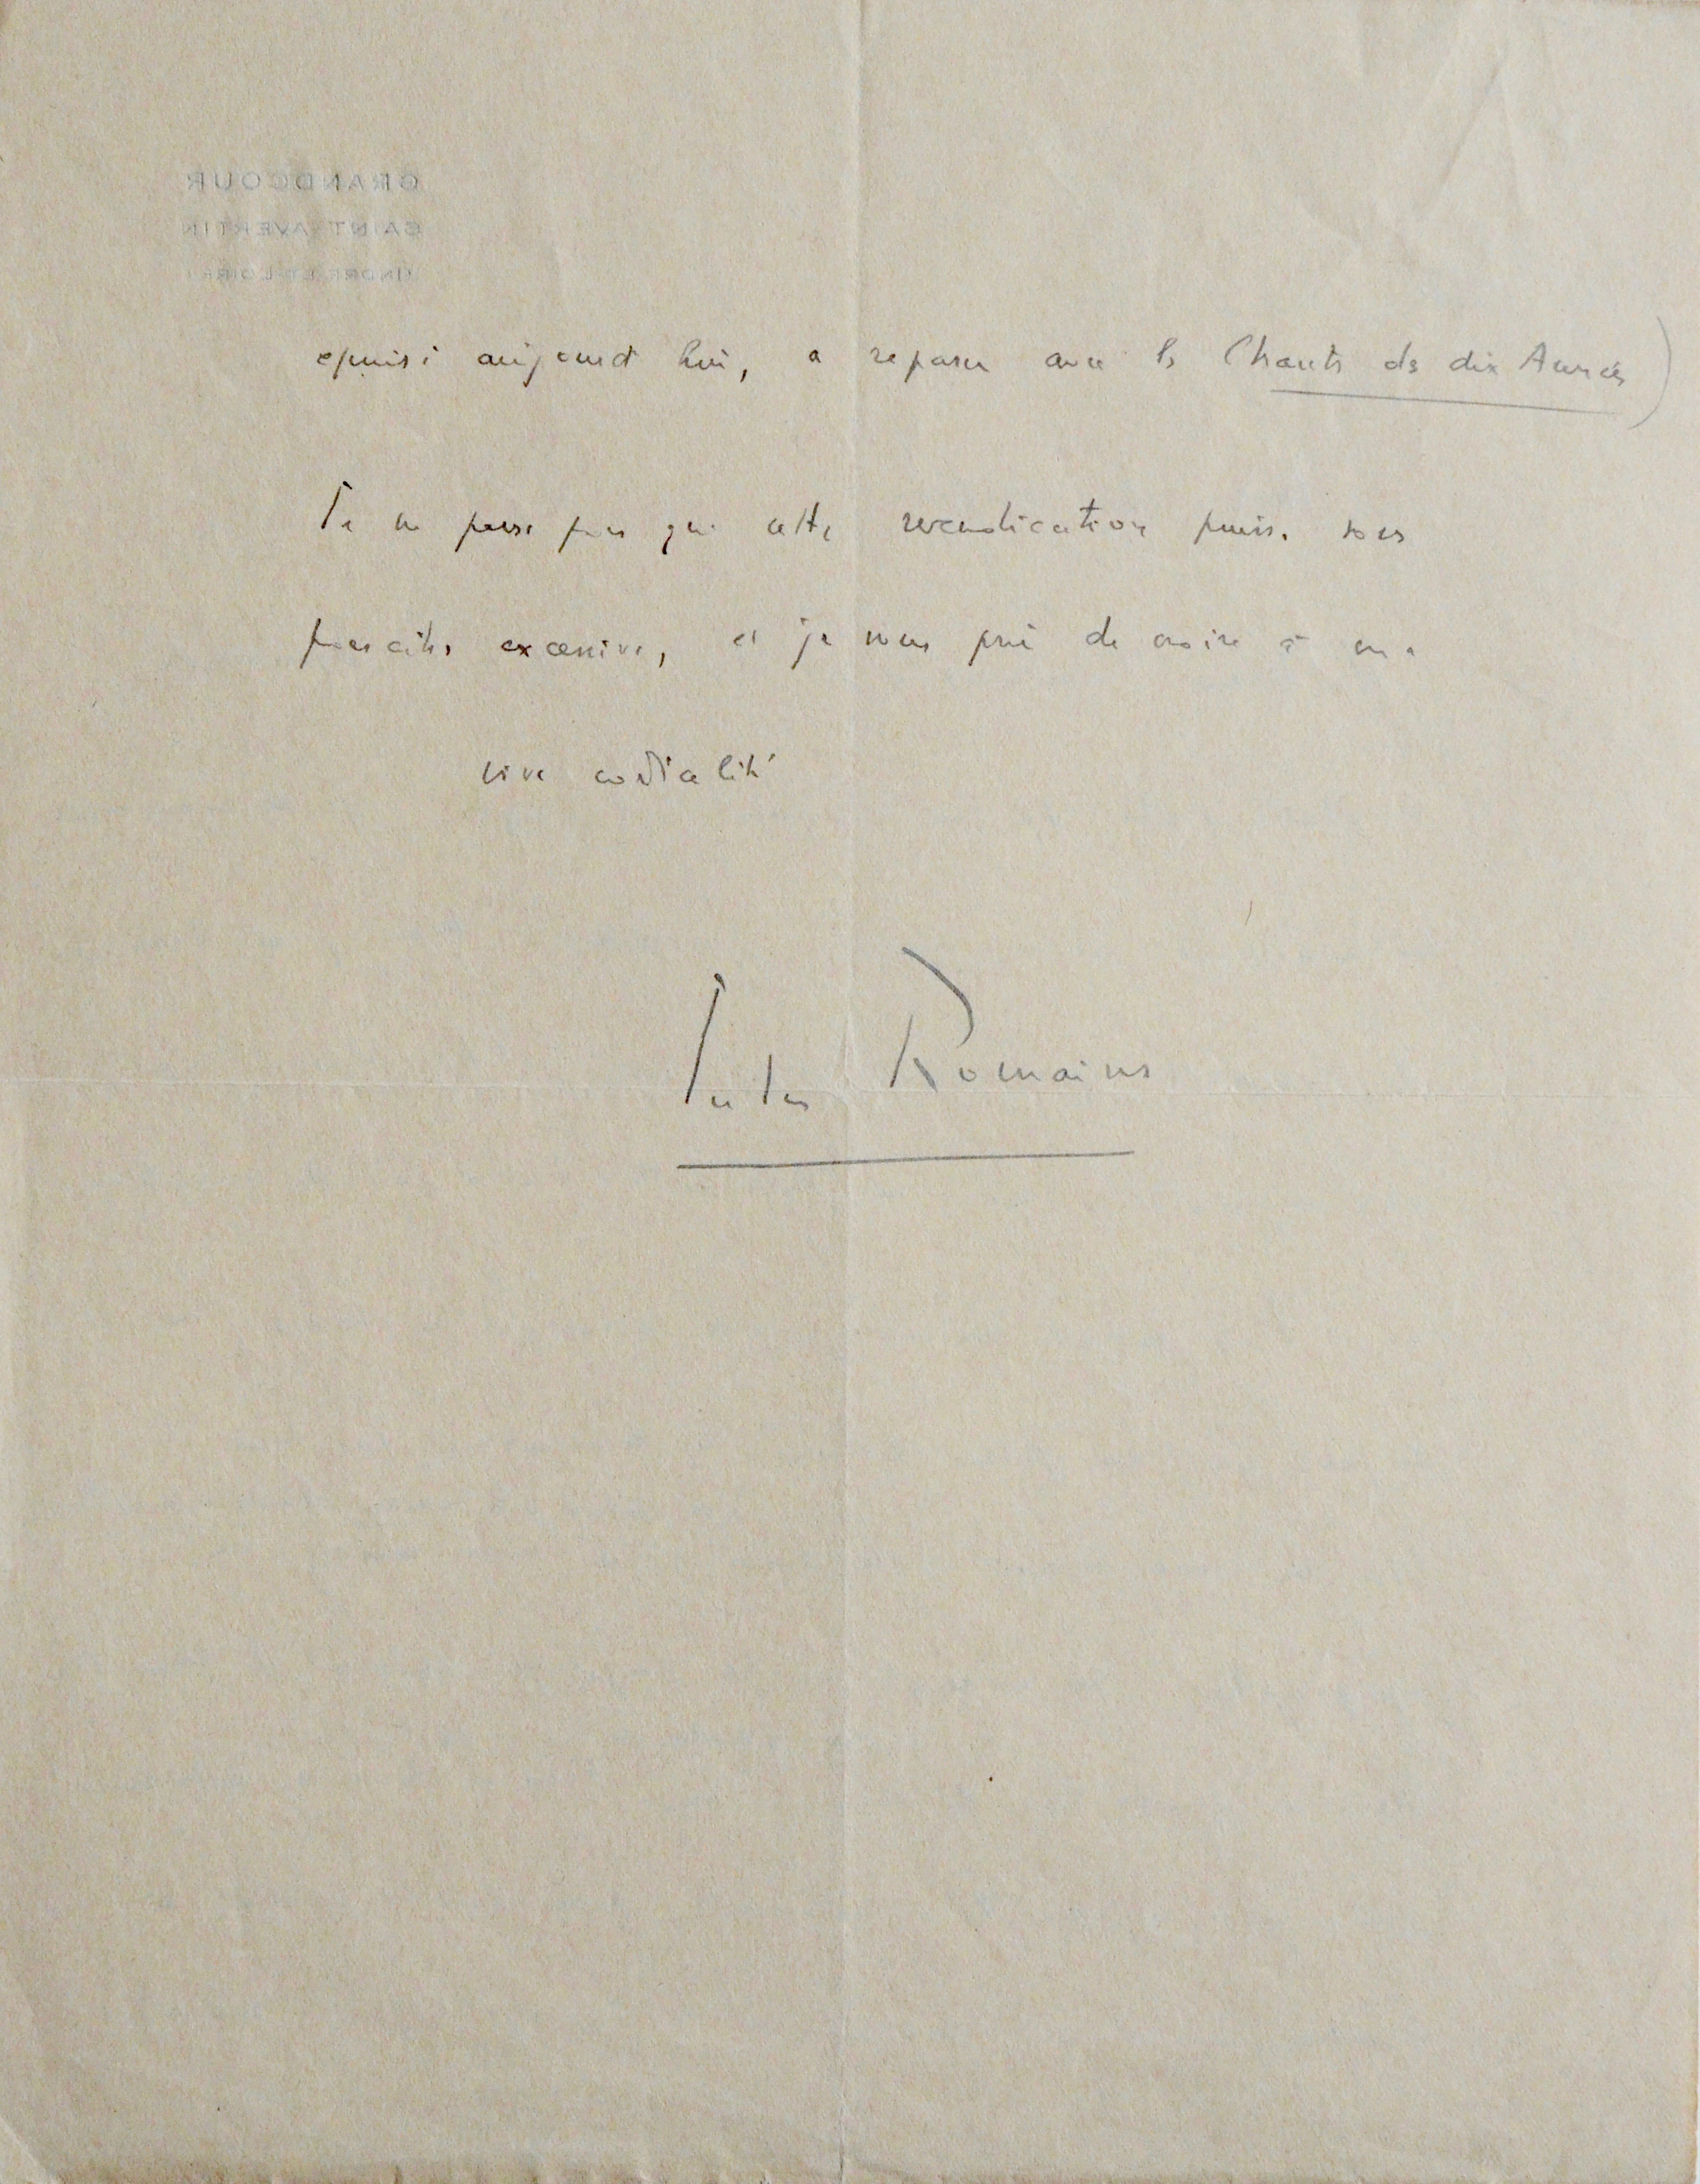 GRANDCOUR
SAINT-AVERTIN
(INDRE-ET-LOIRE)
épuisé aujourd'hui, a reparu avec les Chants des dix Années)
Je ne pense pas que cette revendication puisse vous
paraître excessive, et je vous prie de croire à ma
vive cordialité
Jules Romains